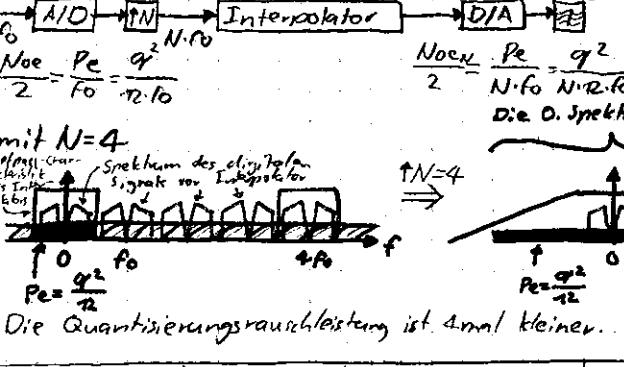 f₀ A/D ↑N N·f₀ Interpolator D/A
Noe/2 = Pe/f₀ = q²/12·f₀
NoeN/2 = Pe/N·f₀ = q²/N·12·f₀
Die O. Spekt
mit N=4
Spektrum des digitalen
Signals vor Interpolator
↑N=4
⇒
0 f₀ 4f₀ f
0
Pe = q²/12
Pe = q²/12
Die Quantisierungsrauschleistung ist 4mal kleiner.